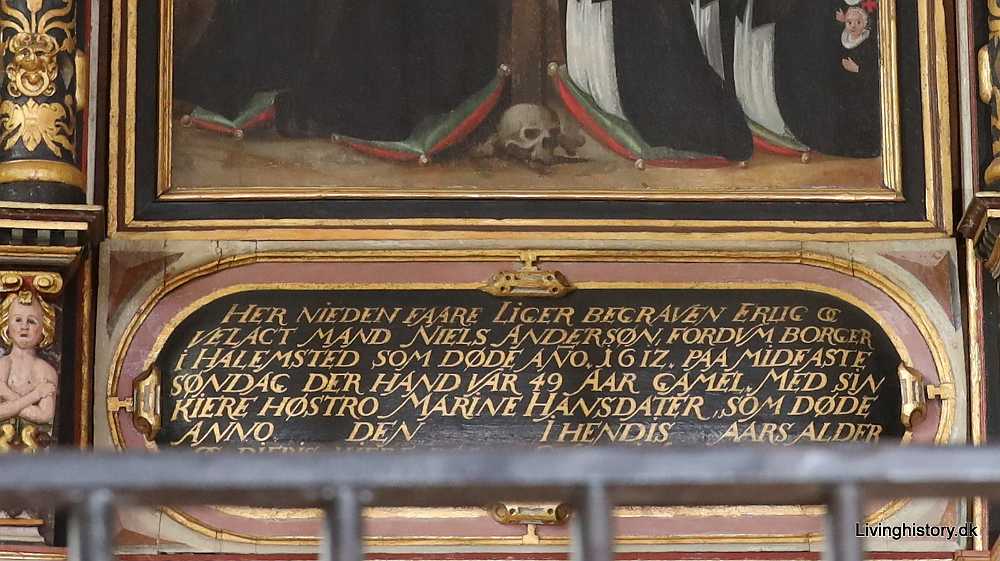 HER NIEDEN FAARE LIGER BEGRAVEN ERLIG OC
VELACT MAND NIELS ANDERSØN, FORDVM BORGER
I HALEMSTED SOM DØDE ANO. 1617. PAA MIDFASTE
SØNDAG DER HAND VAR 49 AAR GAMEL. MED SIN
KIERE HØSTRO MARINE HANSDATER, SOM DØDE
ANNO DEN I HENDIS AARS ALDER
Livinghistory.dk